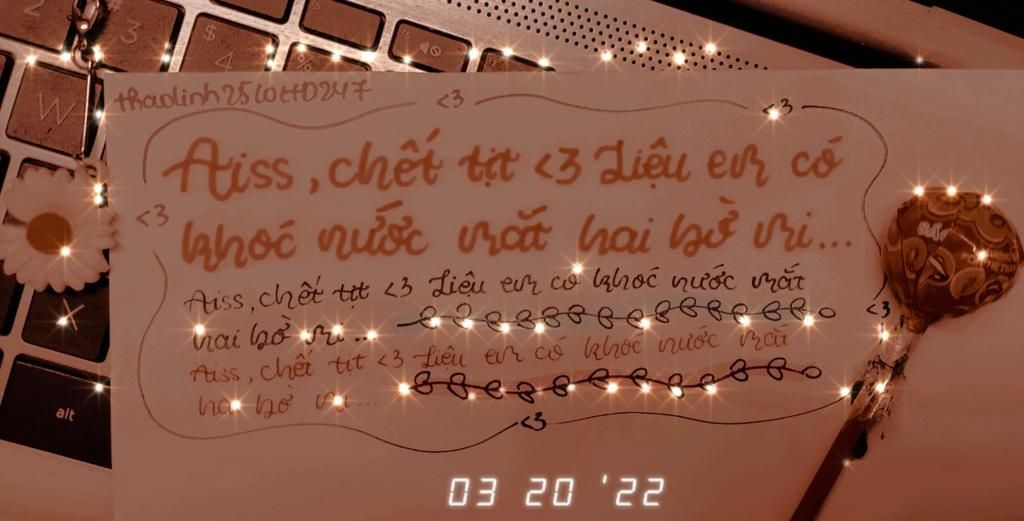 3
$
4
%
W
X
alt
thaolinh25
<3
<3
Aiss, chết tịt <3 Liệu em có
<3
khóc nước mắt hai bờ mi...
Aiss, chết tịt <3 Liệu em có khóc nước mắt
hai bờ mi...
<3
Aiss, chết tịt <3 Liệu em có khóc nước mắt
hai bờ mi...
<3
03 20 '22